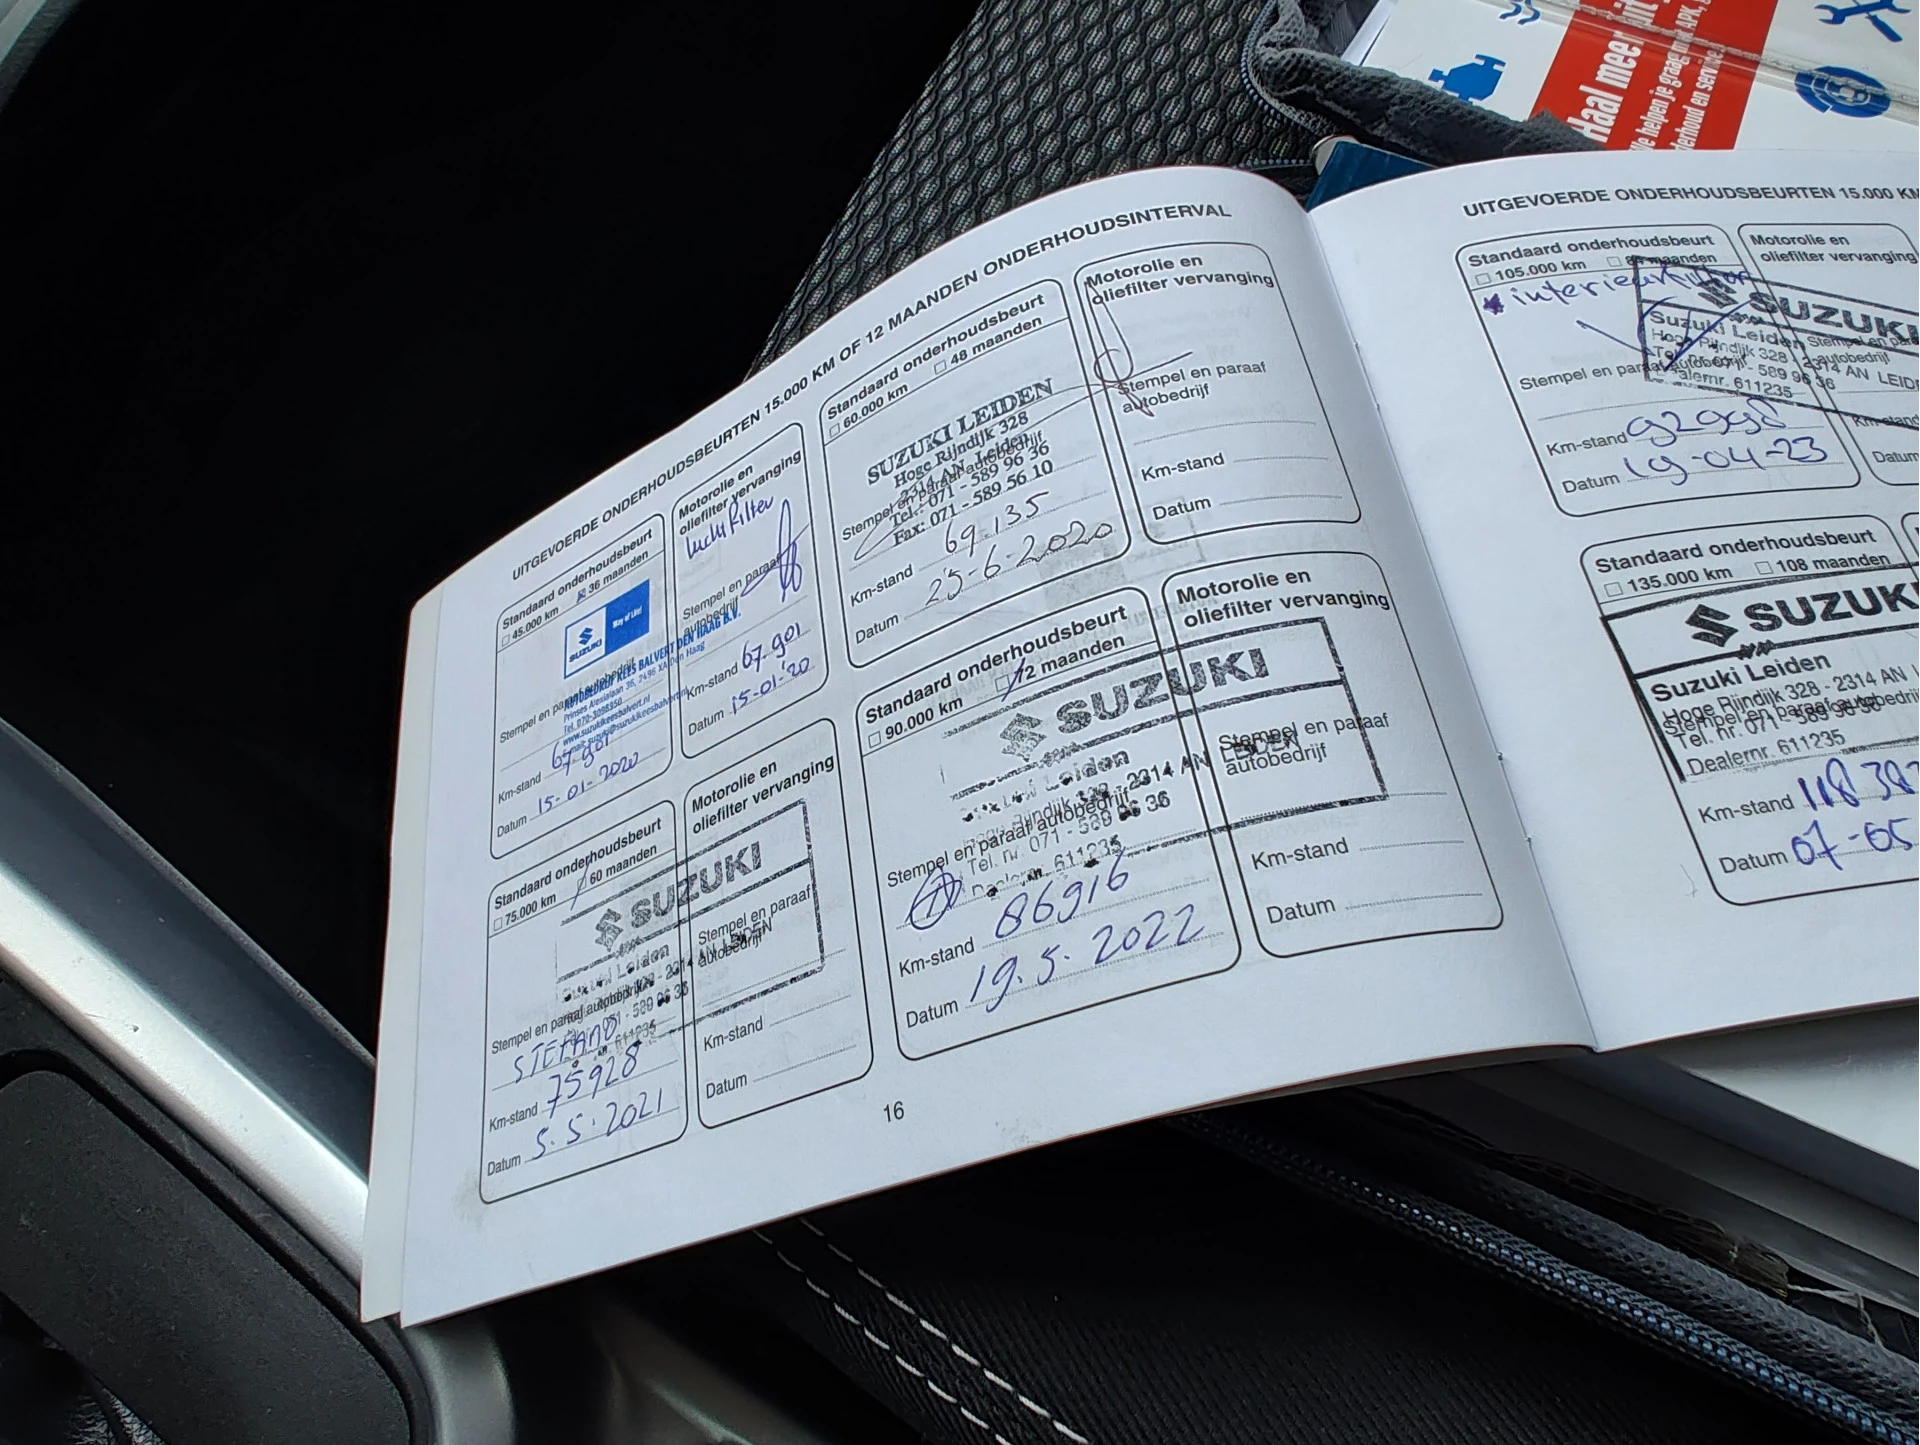 Haal meer uit
We helpen je graag met APK,
UITGEVOERDE ONDERHOUDSBEURTEN 15.000 KM OF 12 MAANDEN ONDERHOUDSINTERVAL
Standaard onderhoudsbeurt
45.000 km 36 maanden
SUZUKI Way of Life!
AUTOBEDRIJF KEES BALVERT DEN HAAG B.V.
Stempel en paraaf autobedrijf
Km-stand 67.901
Datum 15-01-2020
Motorolie en
oliefilter vervanging
luchtfilter
Stempel en paraaf
autobedrijf
Km-stand 67.901
Datum 15-01-'20
Standaard onderhoudsbeurt
60.000 km 48 maanden
SUZUKI LEIDEN
Hoge Rijndijk 328
2314 AN Leiden
Stempel en paraaf autobedrijf
Tel.: 071 - 589 96 36
Fax: 071 - 589 56 10
Km-stand 69.135
Datum 25-6-2020
Motorolie en
oliefilter vervanging
Stempel en paraaf
autobedrijf
Km-stand
Datum
Standaard onderhoudsbeurt
75.000 km 60 maanden
SUZUKI
Suzuki Leiden
Stempel en paraaf autobedrijf
STEFANO
Km-stand 75928
Datum 5.5.2021
Motorolie en
oliefilter vervanging
Stempel en paraaf
autobedrijf
Km-stand
Datum
Standaard onderhoudsbeurt
90.000 km 72 maanden
SUZUKI
Suzuki Leiden
Hoge Rijndijk 328 - 2314 AN LEIDEN
Stempel en paraaf autobedrijf
Tel. nr. 071 - 589 96 36
Dealernr. 611235
Km-stand 86916
Datum 19.5.2022
Motorolie en
oliefilter vervanging
Stempel en paraaf
autobedrijf
Km-stand
Datum
16
UITGEVOERDE ONDERHOUDSBEURTEN 15.000 KM
Standaard onderhoudsbeurt
105.000 km 84 maanden
interieurfilter
SUZUKI
Suzuki Leiden
Hoge Rijndijk 328 - 2314 AN LEIDEN
Tel. nr. 071 - 589 96 36
Stempel en paraaf autobedrijf
Dealernr. 611235
Km-stand 92998
Datum 19-04-23
Motorolie en
oliefilter vervanging
Stempel en paraaf
autobedrijf
Km-stand
Datum
Standaard onderhoudsbeurt
135.000 km 108 maanden
SUZUKI
Suzuki Leiden
Hoge Rijndijk 328 - 2314 AN
Stempel en paraaf autobedrijf
Tel. nr. 071 - 589 96 36
Dealernr. 611235
Km-stand 118 382
Datum 07-05